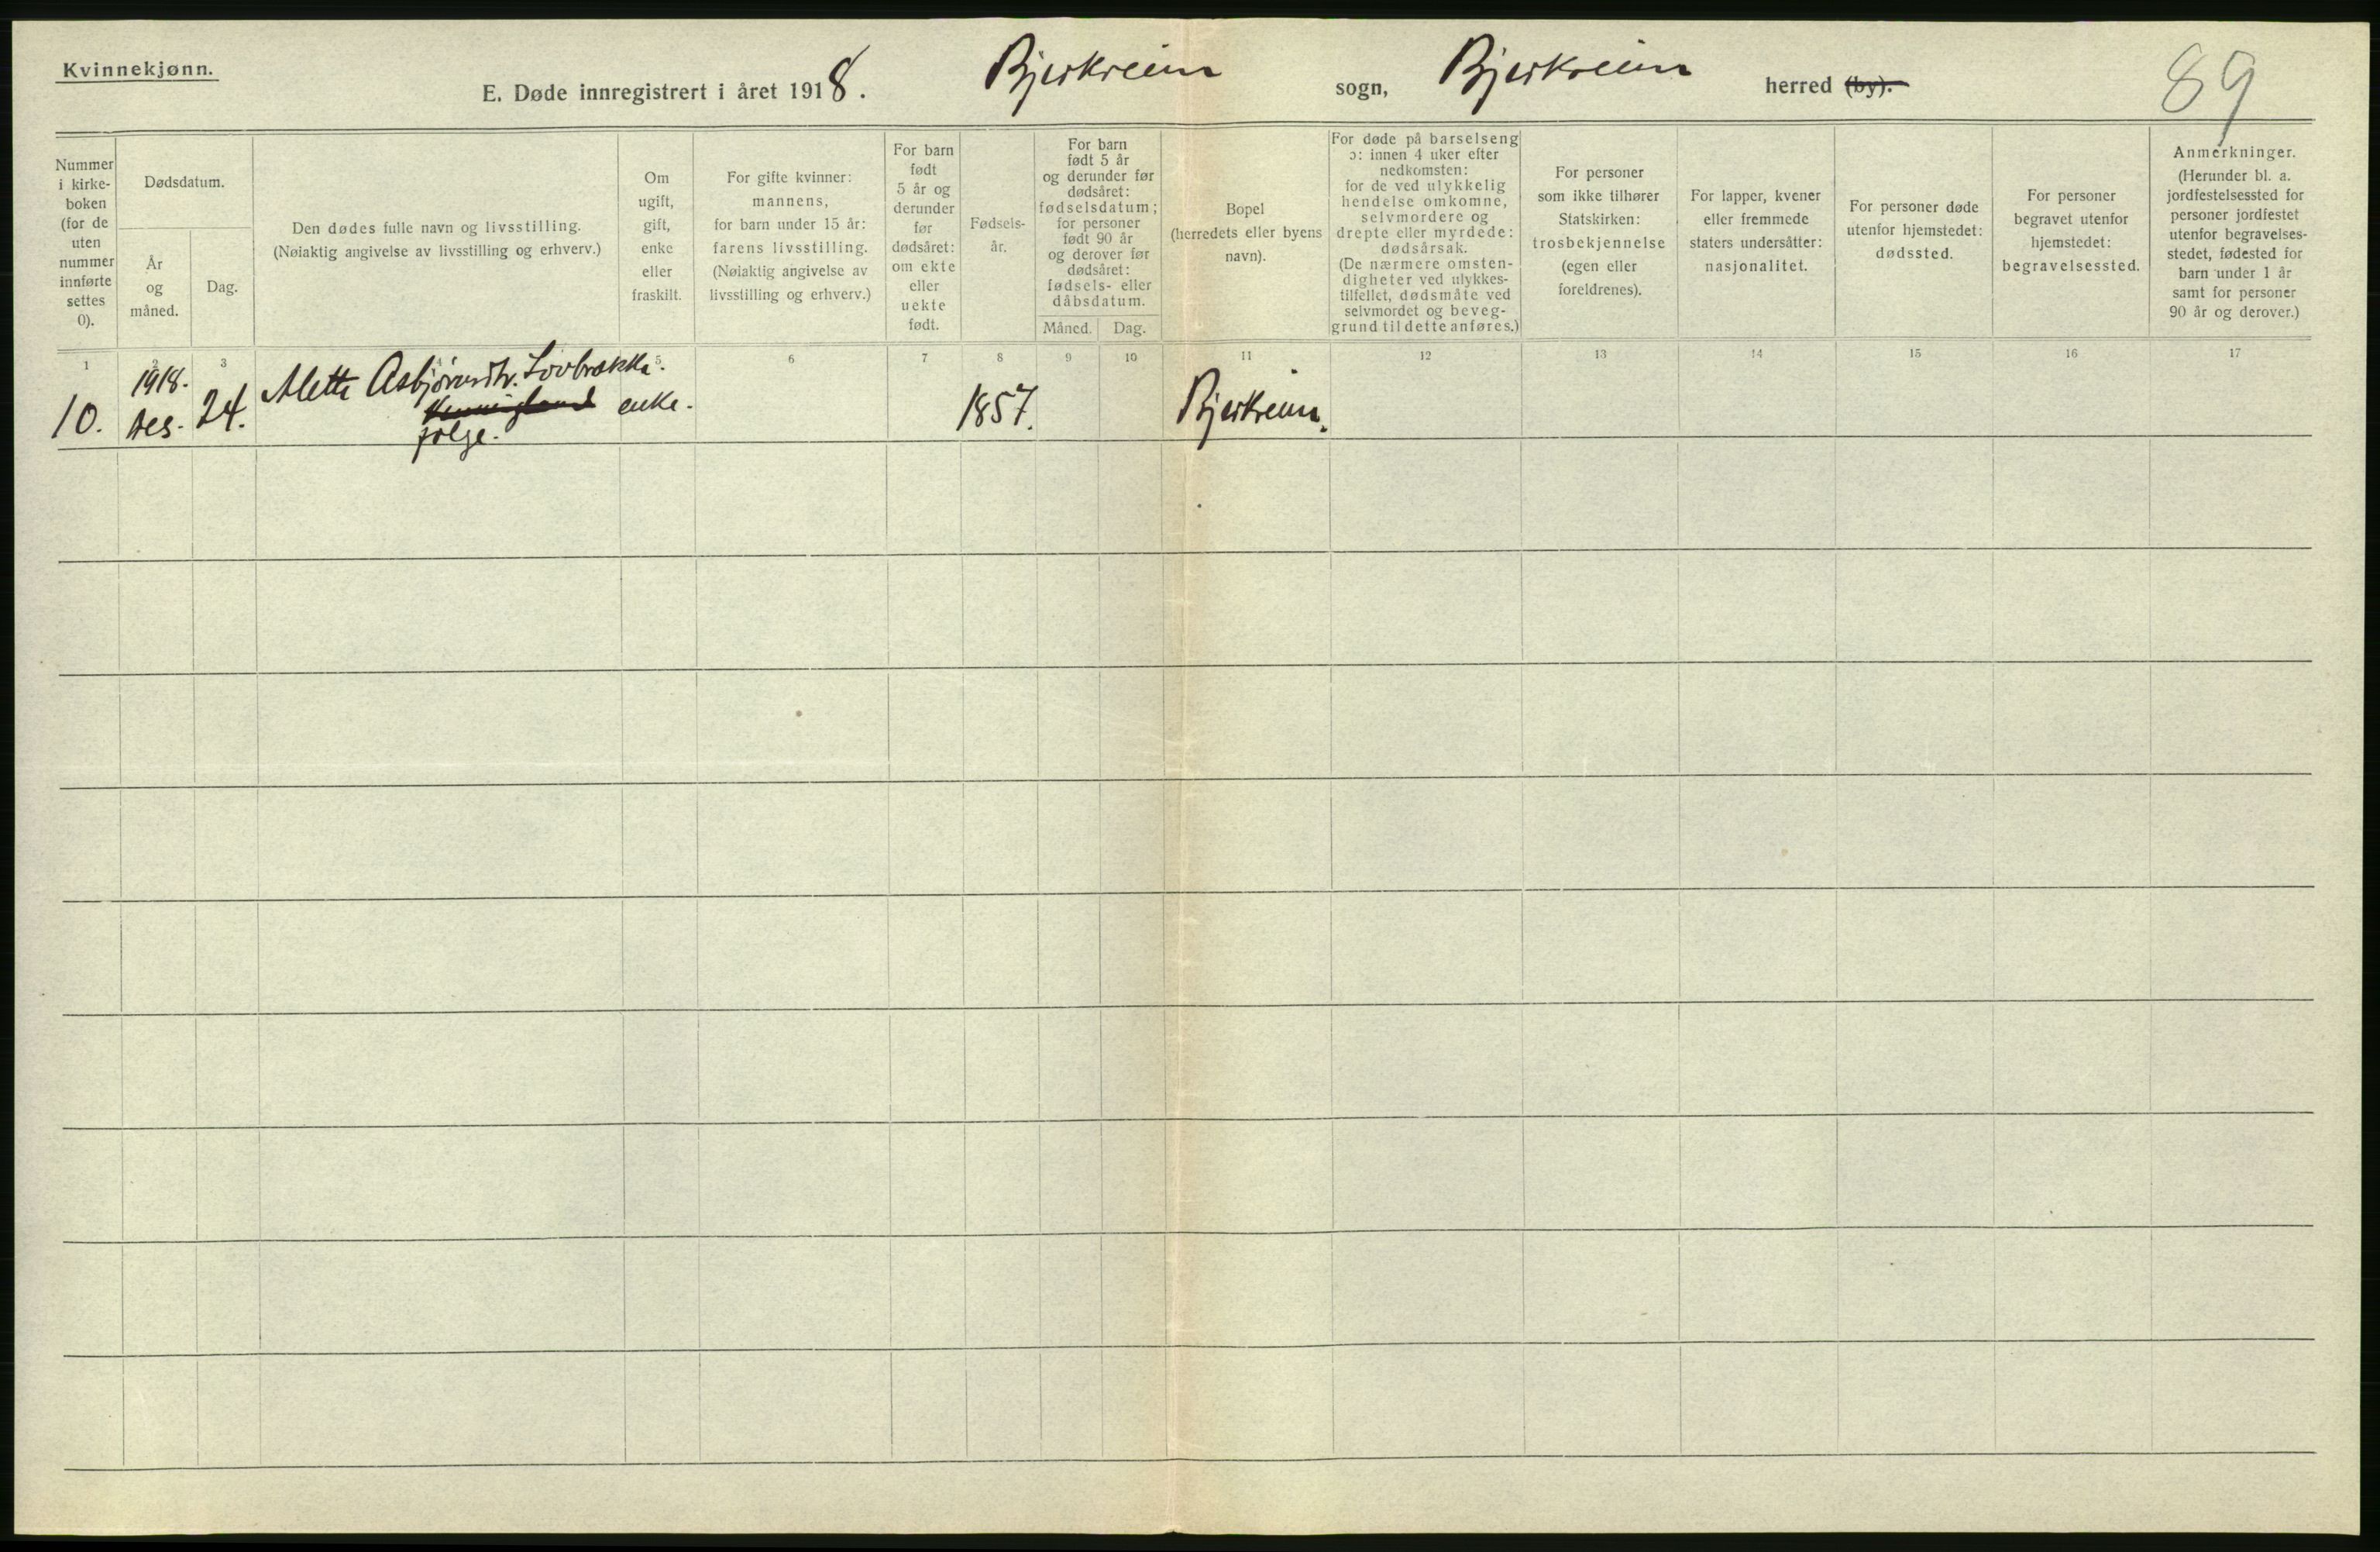 Kvinnekjønn.
E. Døde innregistrert i året 1918. Bjerkreim sogn, Bjerkreim herred (by).
89
Nummer
i kirke-
boken
(for de
uten
nummer
innførte
settes
0).
Dødsdatum.
År
og
måned.
Dag.
Den dødes fulle navn og livsstilling.
(Nøiaktig angivelse av livsstilling og erhverv.)
Om
ugift,
gift,
enke
eller
fraskilt.
For gifte kvinner:
mannens,
for barn under 15 år:
farens livsstilling.
(Nøiaktig angivelse av
livsstilling og erhverv.)
For barn
født
5 år og
derunder
før
dødsåret:
om ekte
eller
uekte
født.
Fødsels-
år.
For barn
født 5 år
og derunder før
dødsåret:
fødselsdatum;
for personer
født 90 år
og derover før
dødsåret:
fødsels- eller
dåbsdatum.
Måned. Dag.
Bopel
(herredets eller byens
navn).
For døde på barselseng
ɔ: innen 4 uker efter
nedkomsten:
for de ved ulykkelig
hendelse omkomne,
selvmordere og
drepte eller myrdede:
dødsårsak.
(De nærmere omsten-
digheter ved ulykkes-
tilfellet, dødsmåte ved
selvmordet og beveg-
grund til dette anføres.)
For personer
som ikke tilhører
Statskirken:
trosbekjennelse
(egen eller
foreldrenes).
For lapper, kvener
eller fremmede
staters undersåtter:
nasjonalitet.
For personer døde
utenfor hjemstedet:
dødssted.
For personer
begravet utenfor
hjemstedet:
begravelsessted.
Anmerkninger.
(Herunder bl. a.
jordfestelsessted for
personer jordfestet
utenfor begravelses-
stedet, fødested for
barn under 1 år
samt for personer
90 år og derover.)
1 2 3 5 6 7 8 9 10 11 12 13 14 15 16 17
1918. Mette Asbjørnsdtr. Lovbrække.
10. Des. 24. enke. 1857. Bjerkreim.